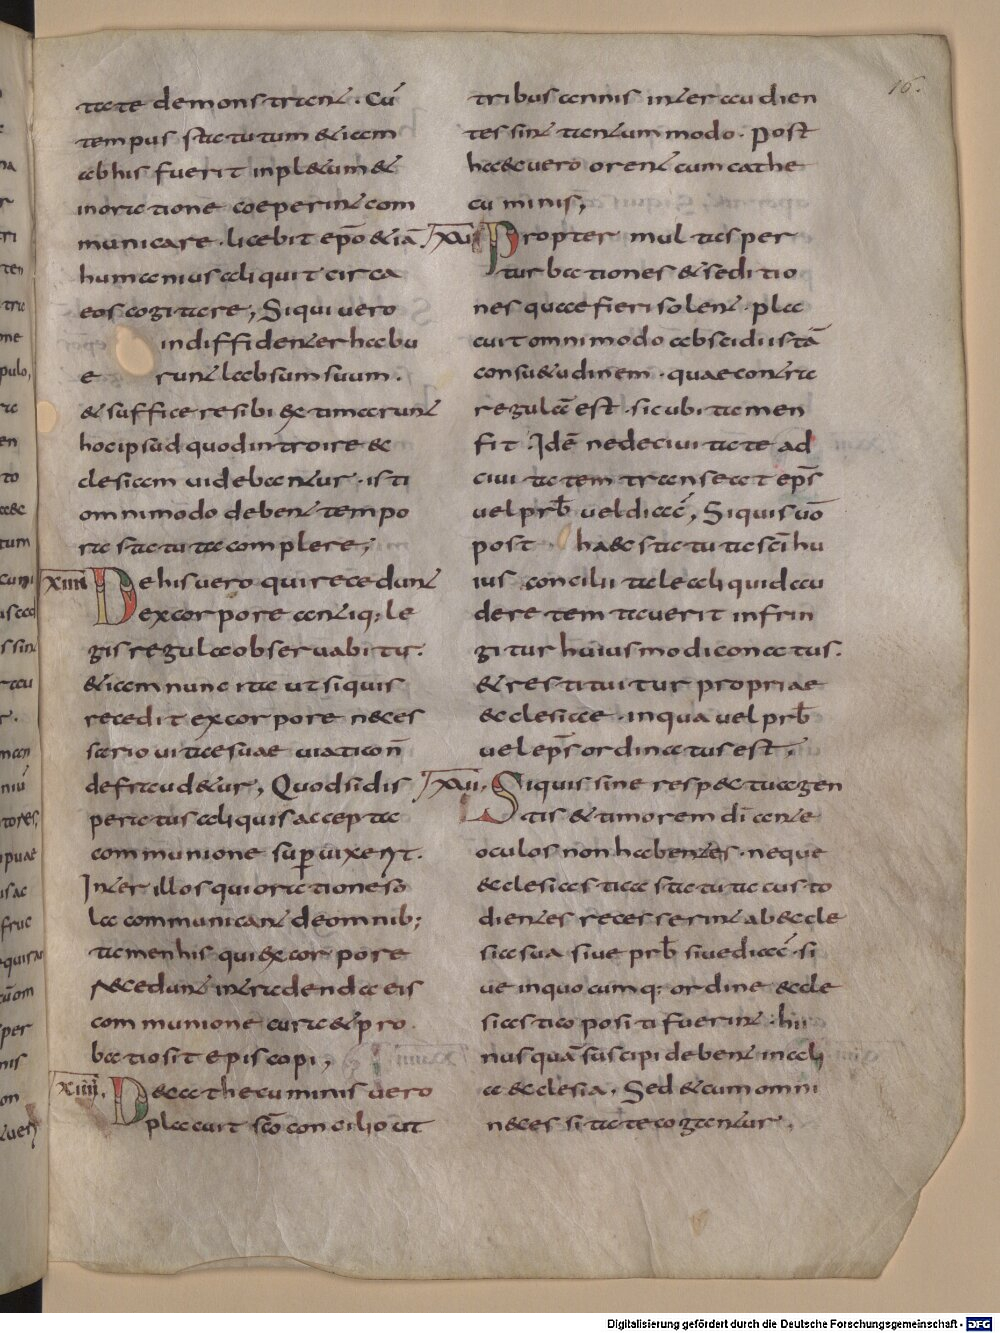 tate demonstrent. Cū
tempus statutum & iam
ab his fuerit inpl&um & in
inoratione coeperint com
municare. licebit ep̄o &iā
humanius aliquit circa
eos cogitare, Siqui vero
indiffidenter habu
e runt labsum suum.
& sufficere sibi &xtimarunt
hoc ipsud quod introire &c
clesiam videbantur. isti
omnimodo debent tempo
ra statuta complere,
XIII De his vero qui recedunt
ex corpore antiq; le
gis regula observabitur.
& iam nunc ita ut siquis
recedit ex corpore neces
sario vitae suae viaticon̄
defraud&ur, Quod si dis
peratus aliquis accepta
communione supervixerit.
Inter illos qui oratione so
la communicant de omnib;
tamen his qui ex corpore
recedunt intradenda eis
communione cura & pro
batio sit episcopi,
XIIII. De cathecuminis vero
placuit sc̄o concilio ut
16.
tribus annis inter audien
tes sint tantummodo. Post
haec vero orent cum cathe
cuminis,
XVI Propter multas per
turbationes & seditio
nes quae fieri solent. pla
cuit omnimodo abscidi istā
consu&udinem. quae contra
regulā est. sicubi tamen
fit. Idē ne de civitate ad
civitatem transeat ep̄s
vel prb̄ vel diac̄, Siquis v̄o
post haec statuta sc̄i hu
ius concilii tale aliquid au
dere temtaverit infrin
gitur huiusmodi conatus.
& restituitur propriae
&cclesiae. in qua vel prb̄
vel ep̄s ordinatus est,
XVII. Siquis sine resp&ctu agen
tis & timorem dī ante
oculos non habentes. neque
&cclesiastica statuta custo
dientes recesserint ab &ccle
sia sua sive prb̄ sive diac̄. si
ve in quocumq; ordine &ccle
siastico positi fuerint. hii
nusquā suscipi debent in ali
a &cclesia. Sed & cum omni
necessitate cogantur,
Digitalisierung gefördert durch die Deutsche Forschungsgemeinschaft - DFG